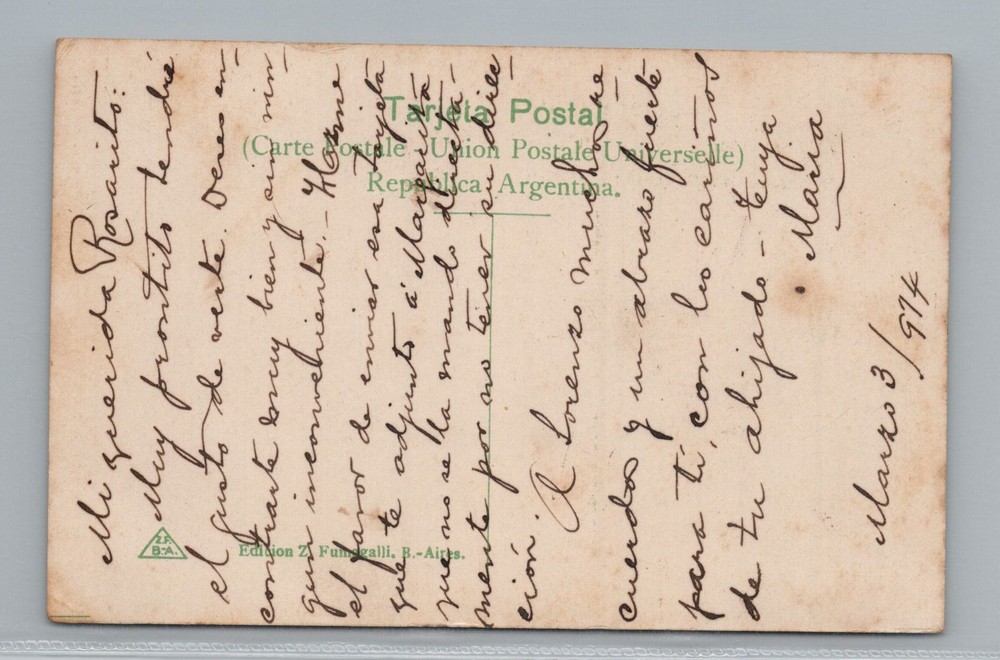 Tarjeta Postal
(Carte Postale - Union Postale Universelle)
República Argentina.
Mi querida Rosarito:
Muy prontito tendré
el gusto de verte. Deseo en-
contrarte muy bien y sin nin-
gun inconveniente. - Hazme
el favor de enviar esa tarjeta
que te adjunto á Margarita
que no se la mando directa-
mente por no tener su direc-
ción.
A Lorenzo muchos re
cuerdos y un abrazo fuerte
para tí, con los cariños
de tu ahijado - Tuya
María
Marzo 3/914
Z.F.
B-A.
Edition Z. Fumagalli. B.-Aires.